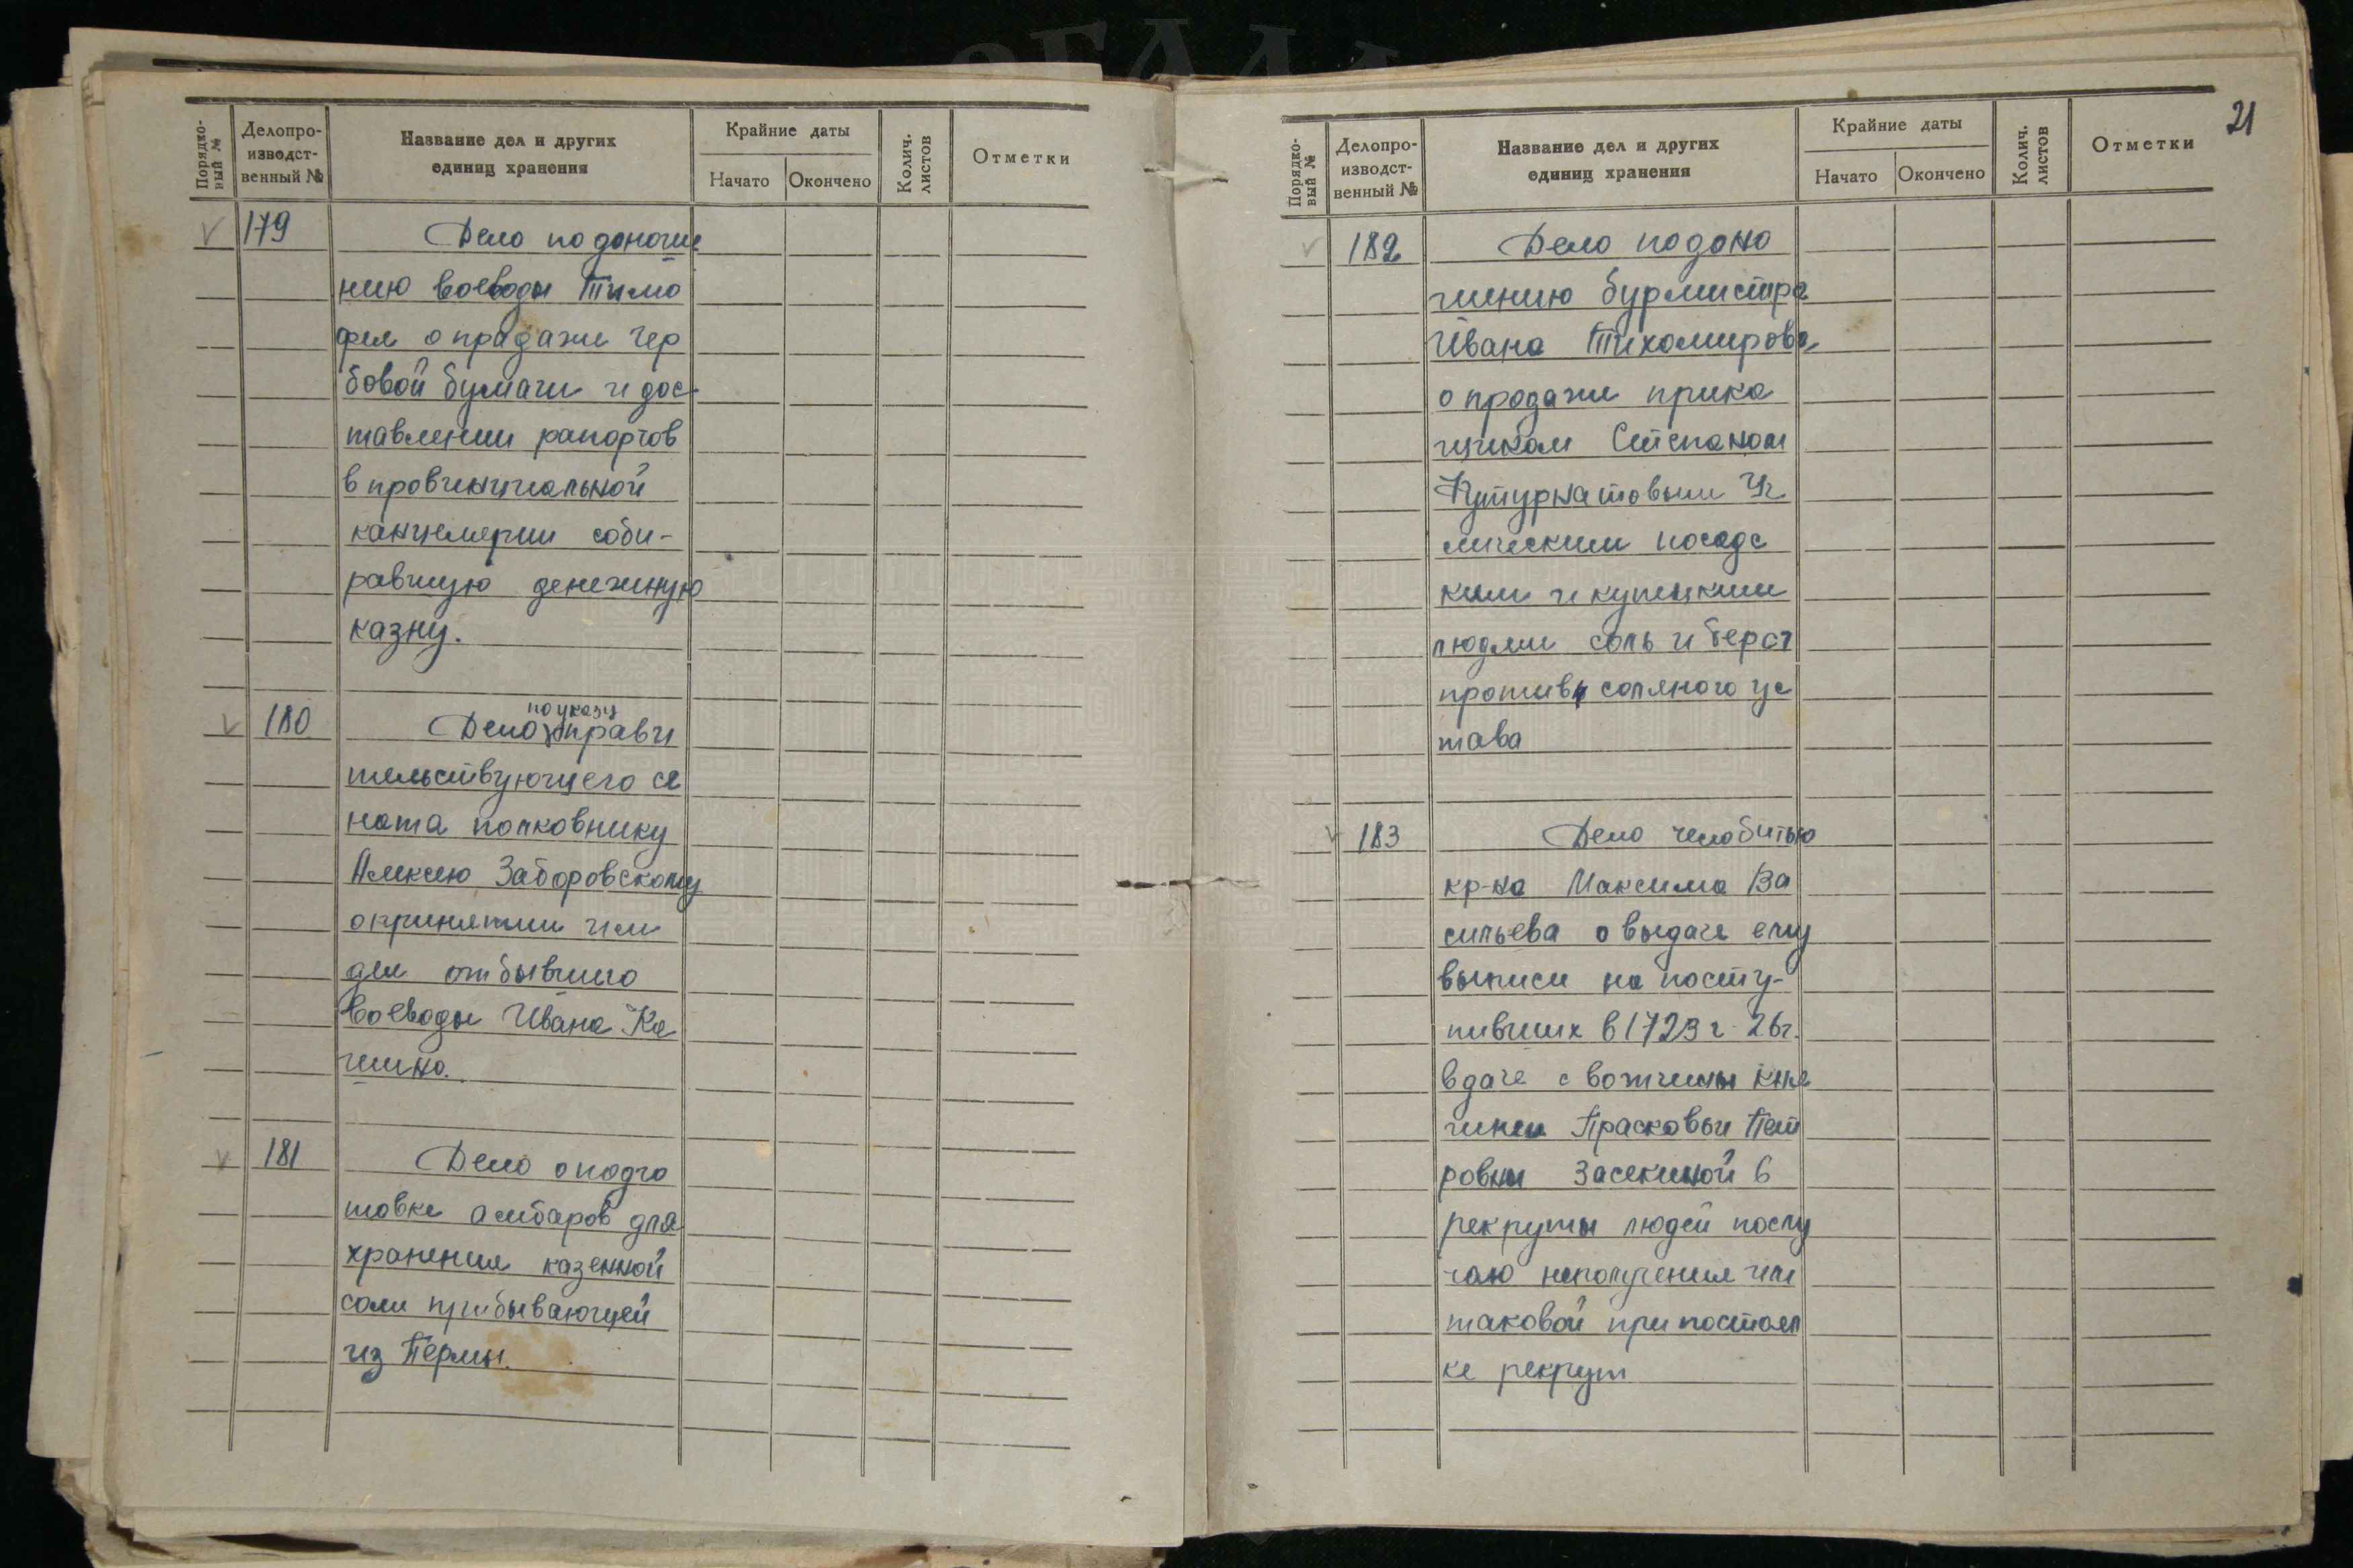 Порядко-
вый №
Делопро-
изводст-
венный №
Название дел и других
единиц хранения
Крайние даты
Начато
Окончено
Колич.
листов
Отметки
179
Дело по доноше
нию воеводы Тимо
фея о продажи гер
бовой бумаги и дос-
тавлении рапортов
в провинциальной
канцелярии соби-
равшую денежную
казну.
180
по указу
Дело правы
тельствующего се
ната полковнику
Алексею Заборовскому
о принятии им
дел отбывшего
воеводы Ивана Ка
шина.
181
Дело о подго
товке амбаров для
хранения казенной
соли прибывающей
из Перми.
21
Порядко-
вый №
Делопро-
изводст-
венный №
Название дел и других
единиц хранения
Крайние даты
Начато
Окончено
Колич.
листов
Отметки
182
Дело по доно
шению бурмистра
Ивана Тихомирова
о продажи прика
щиком Степаном
посадс
ким и купецким
людям соль и берет
против соляного ус
тава
183
Дело челобитью
кр-на Максима Ва
сильева о выдаче ему
выписи на посту-
пивших в 1723 г 26г.
в даче с вотчины кня
гини Прасковьи Пет
ровны Засекиной в
рекруты людей послу
чаю неполучения им
таковой при постав
ке рекрут